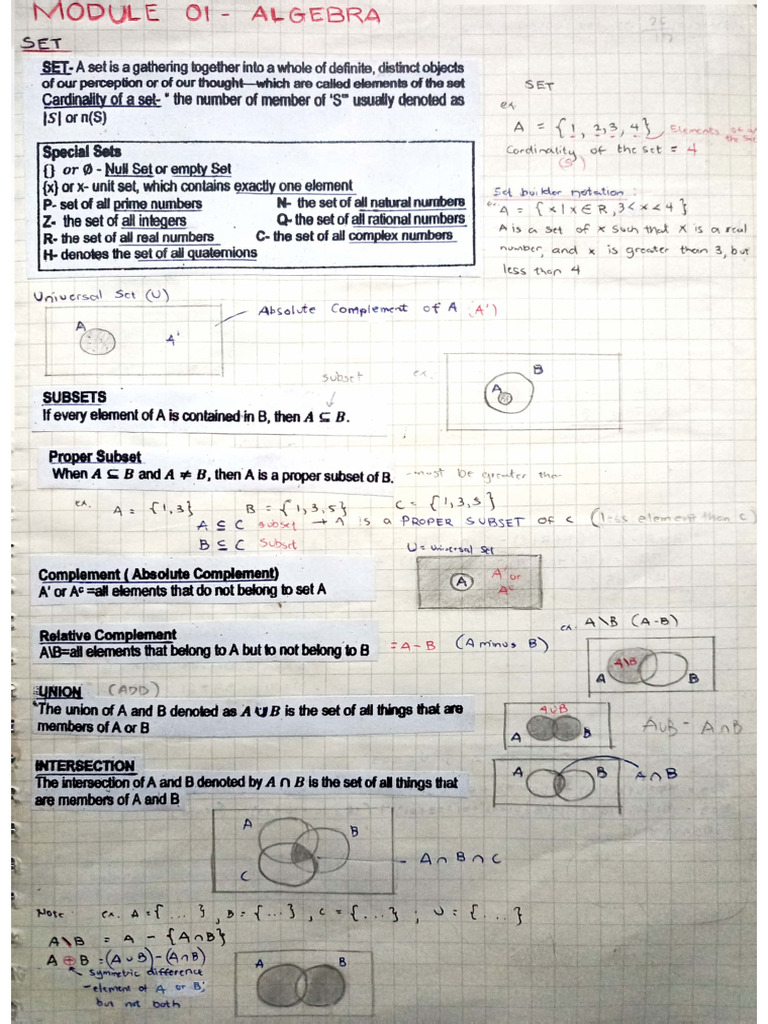 MODULE 01 - ALGEBRA
SET
SET- A set is a gathering together into a whole of definite, distinct objects
of our perception or of our thought—which are called elements of the set
Cardinality of a set- " the number of member of 'S'" usually denoted as
|S| or n(S)
SET
ex
A = {1, 2, 3, 4} Elements of
the set
Cordinality of the set = 4
(S)
Special Sets
{} or ∅ - Null Set or empty Set
{x} or x- unit set, which contains exactly one element
P- set of all prime numbers N- the set of all natural numbers
Z- the set of all integers Q- the set of all rational numbers
R- the set of all real numbers C- the set of all complex numbers
H- denotes the set of all quaternions
Set builder notation :
ex. A = {x | x ∈ R, 3 < x < 4}
A is a set of x such that x is a real
number, and x is greater than 3, but
less than 4
Universal Set (U)
A
A'
Absolute Complement of A (A')
subset
ex.
A B
SUBSETS
If every element of A is contained in B, then A ⊆ B.
Proper Subset
When A ⊆ B and A ≠ B, then A is a proper subset of B. -must be greater the-
ex. A = {1,3} B = {1,3,5} C = {1,3,5}
A ⊆ C subset → A is a PROPER SUBSET of C (less element than C)
B ⊆ C Subset
U = universal set
A A' or
Aᶜ
Complement ( Absolute Complement)
A' or Aᶜ =all elements that do not belong to set A
Relative Complement
A\B=all elements that belong to A but to not belong to B = A - B (A minus B)
ex. A\B (A-B)
A\B
A B
UNION (ADD)
The union of A and B denoted as A ∪ B is the set of all things that are
members of A or B
A∪B
A B
A∪B - A∩B
INTERSECTION
The intersection of A and B denoted by A ∩ B is the set of all things that
are members of A and B
A B A∩B
A
B
C
- A ∩ B ∩ C
Note: ex. A = {...}, B = {...}, C = {...} ; U = {...}
A\B = A - {A∩B}
A ⊕ B = (A∪B) - (A∩B)
symmetric difference
- element of A or B;
but not both
A B